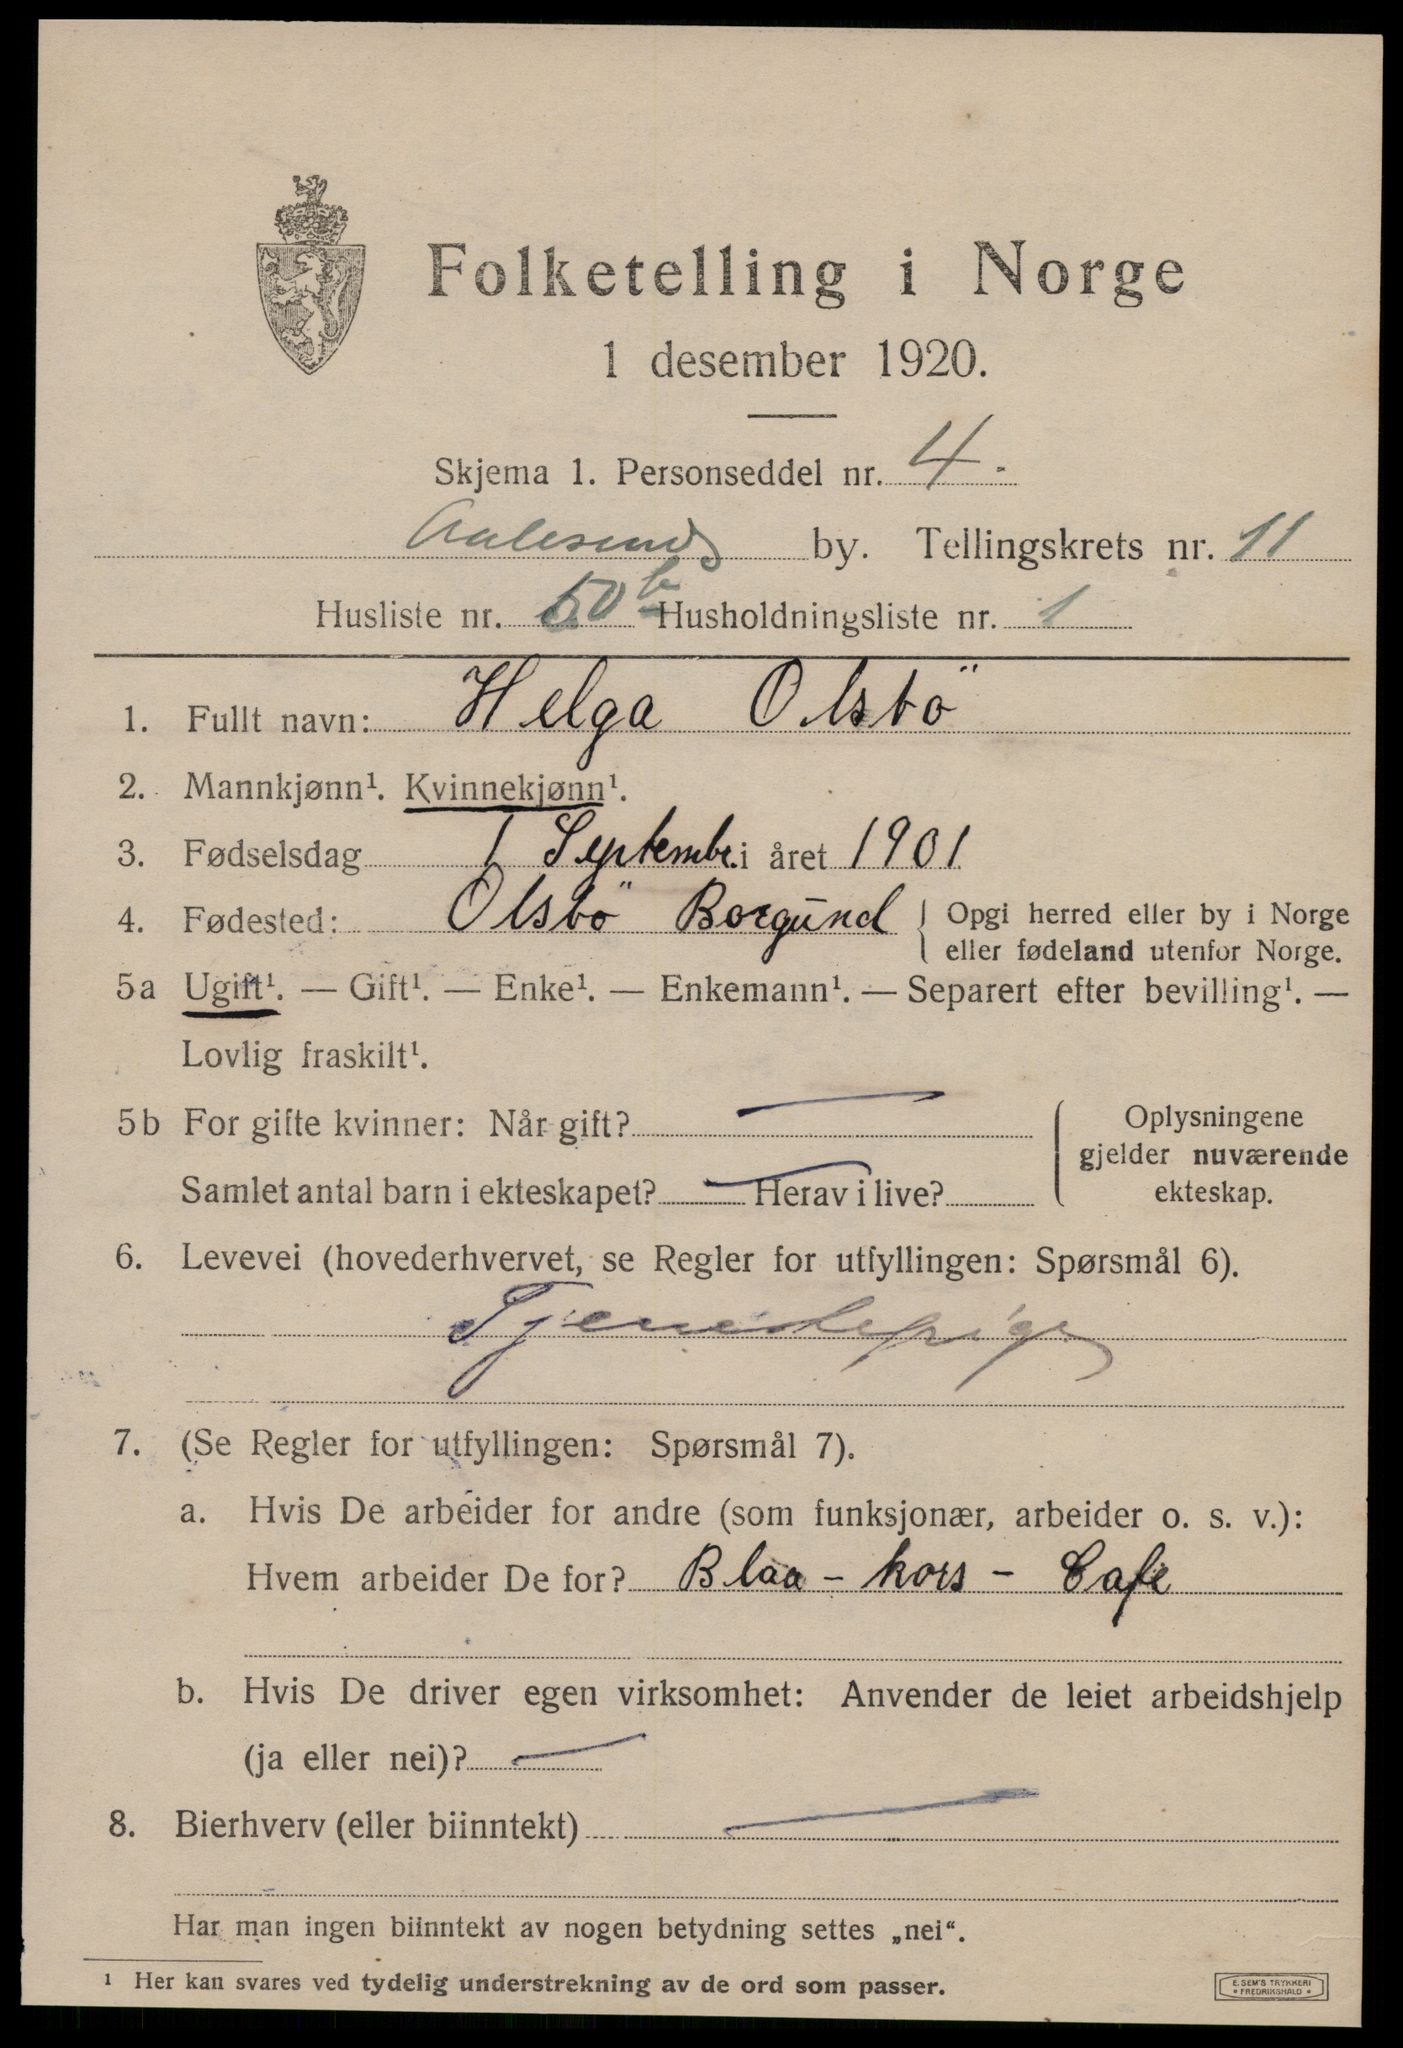 Folketelling i Norge
1 desember 1920.
Skjema 1. Personseddel nr. 4.
Aalesunds by. Tellingskrets nr. 11
Husliste nr. 50 b Husholdningsliste nr. 1
1. Fullt navn: Helga Olsbö
2. Mannkjønn¹. Kvinnekjønn¹.
3. Fødselsdag 1 Septembr. i året 1901
4. Fødested: Olsbö Borgund { Opgi herred eller by i Norge
eller fødeland utenfor Norge.
5a Ugift¹. — Gift¹. — Enke¹. — Enkemann¹. — Separert efter bevilling¹. —
Lovlig fraskilt¹.
5b For gifte kvinner: Når gift? — { Oplysningene
gjelder nuværende
Samlet antal barn i ekteskapet? — Herav i live? ekteskap.
6. Levevei (hovederhvervet, se Regler for utfyllingen: Spørsmål 6).
Tjenestepige
7. (Se Regler for utfyllingen: Spørsmål 7).
a. Hvis De arbeider for andre (som funksjonær, arbeider o. s. v.):
Hvem arbeider De for? Blaa - kors - Cafe
b. Hvis De driver egen virksomhet: Anvender de leiet arbeidshjelp
(ja eller nei)? —
8. Bierhverv (eller biinntekt) —
Har man ingen biinntekt av nogen betydning settes „nei“.
¹ Her kan svares ved tydelig understrekning av de ord som passer.
E. SEM'S TRYKKERI
• FREDRIKSHALD •